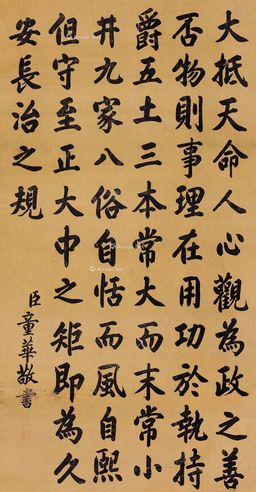 大抵天命人心觀為政之善
否物則事理在用功於執持
爵五土三本常大而末常小
井九家八俗自恬而風自熙
但守至正大中之矩即為久
安長治之規
臣童華敬書